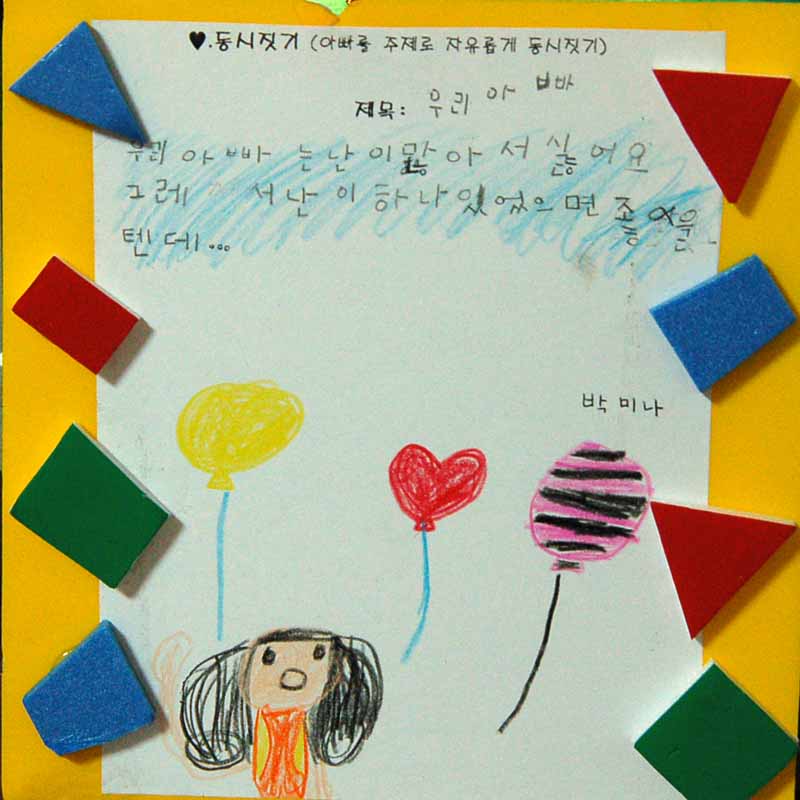 ♥.동시짓기 (아빠를 주제로 자유롭게 동시짓기)
제목: 우리 아빠
우리 아빠는 난이 많아서 싫어요
그레서 난이 하나 있었으면 좋았을
텐데...
박미나